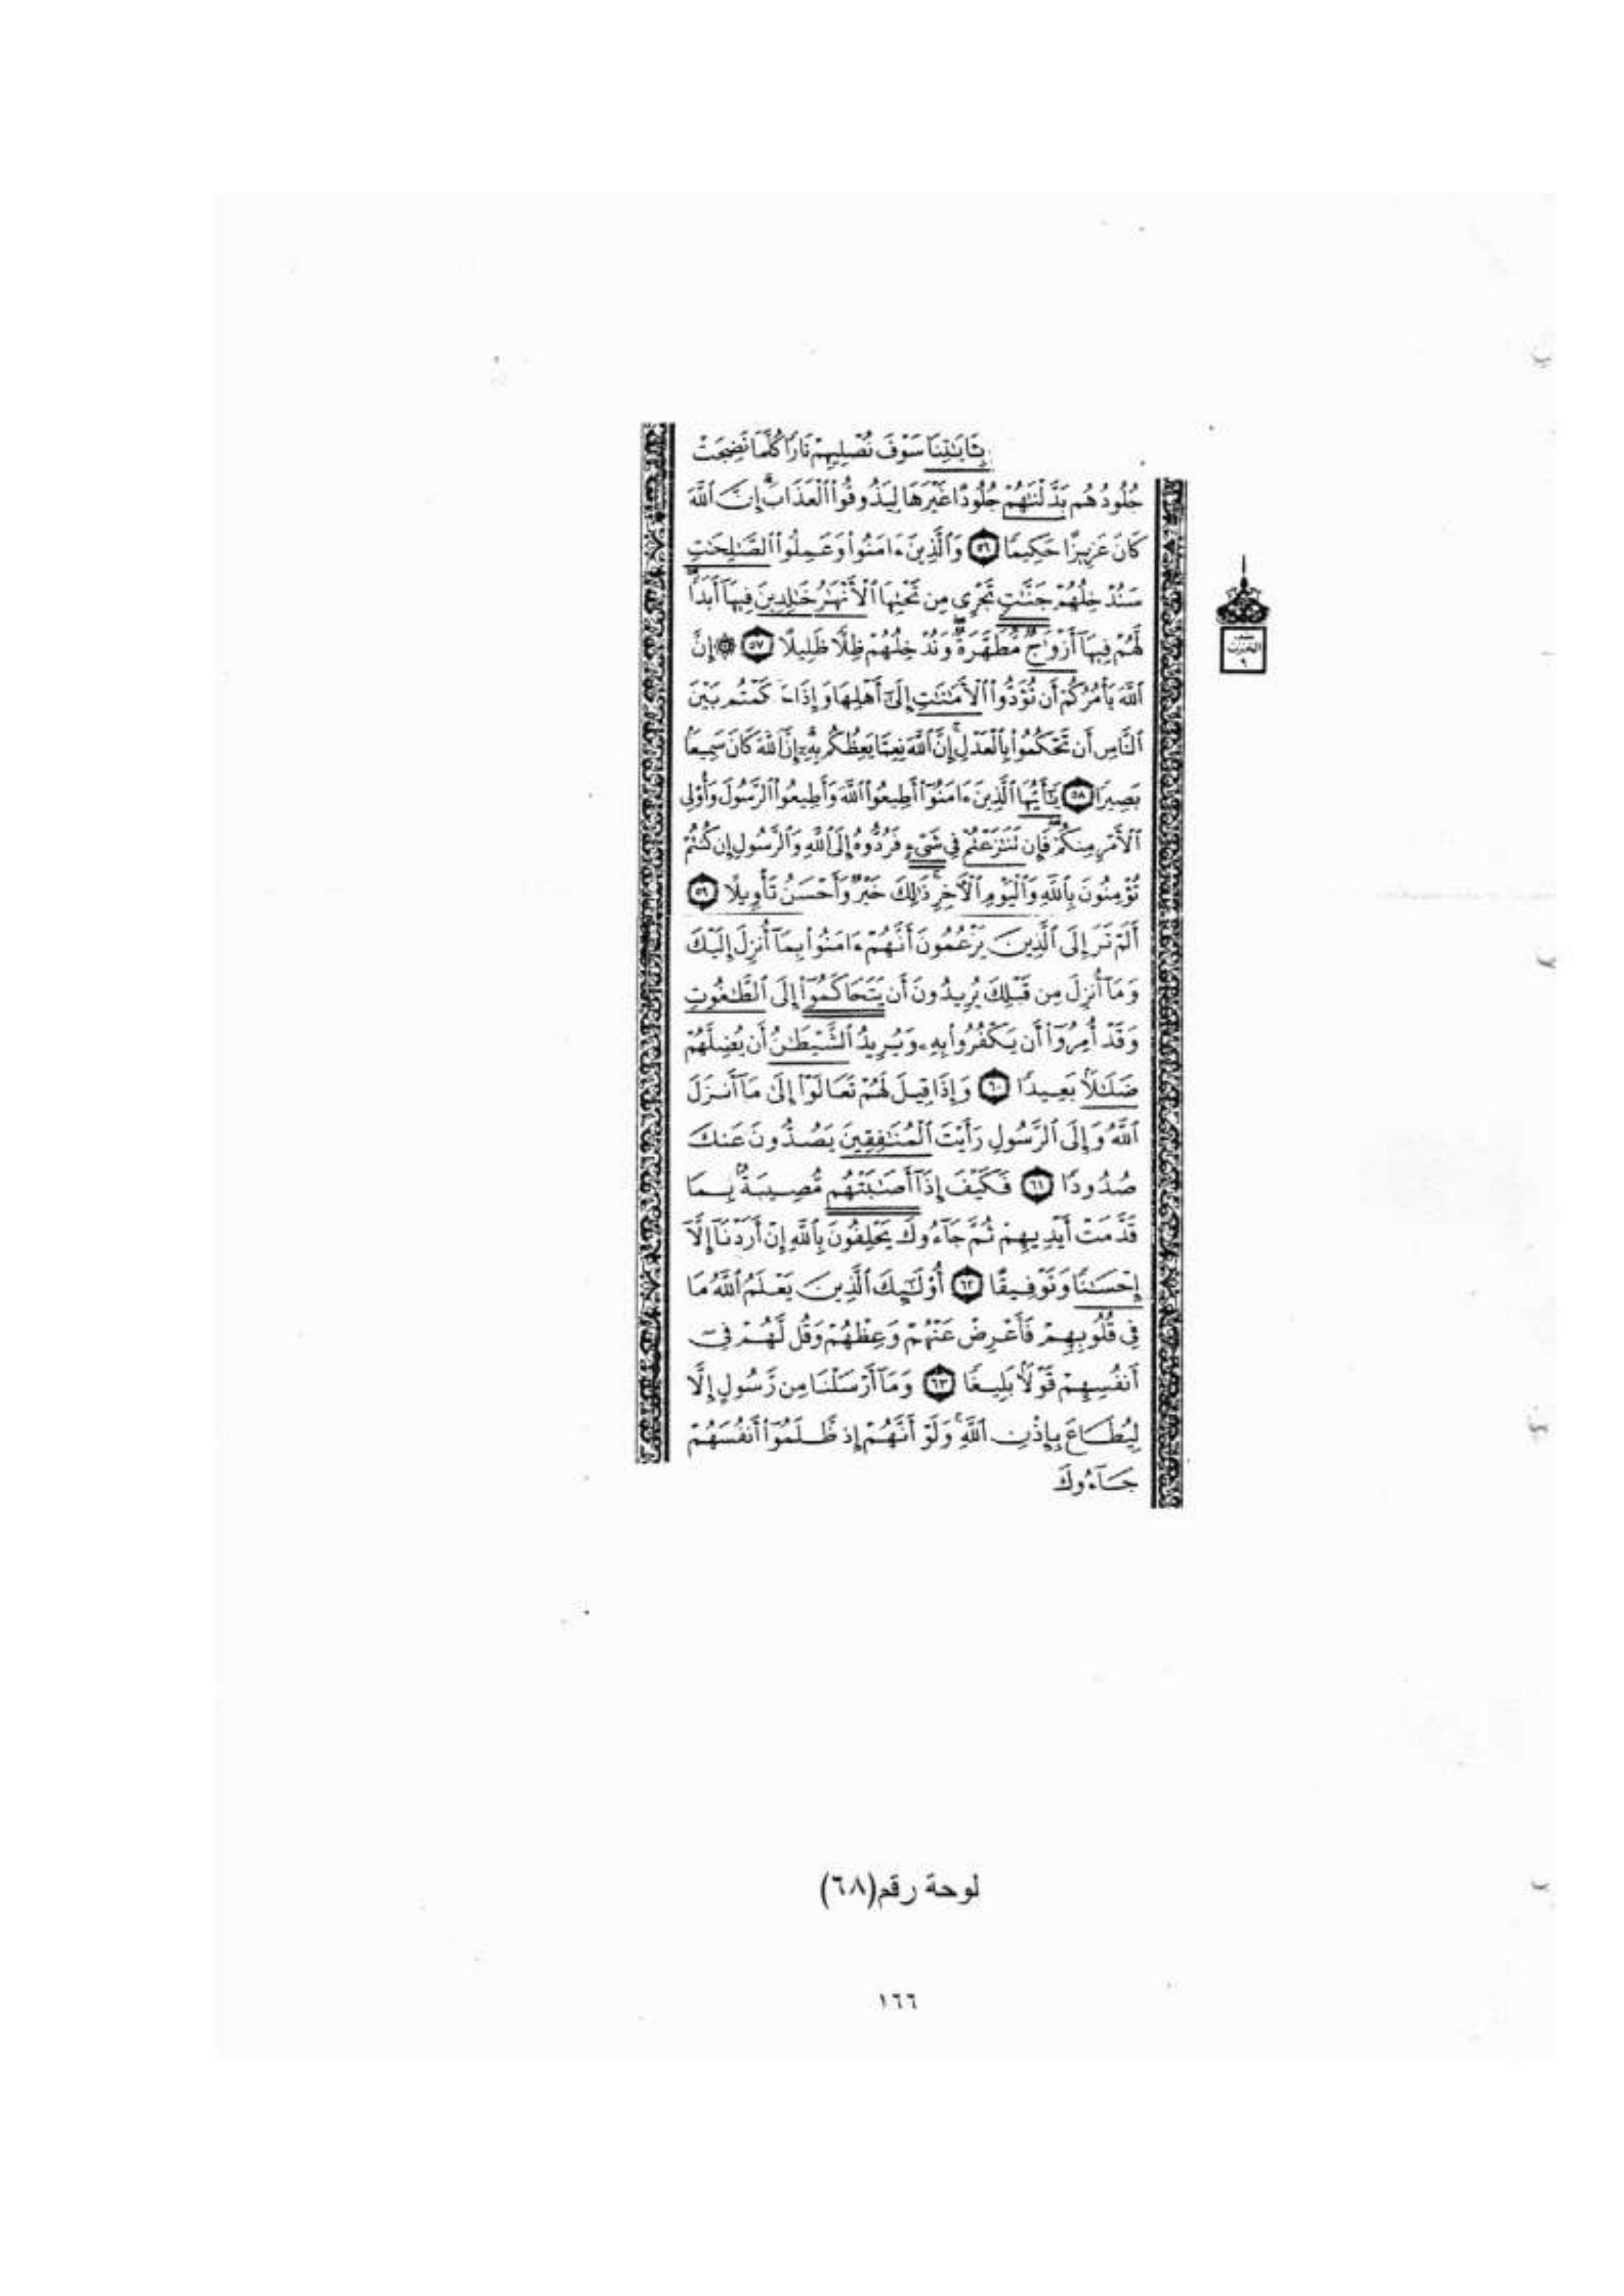 بِـَٔايَـٰتِنَا سَوْفَ نُصْلِيهِمْ نَارًا كُلَّمَا نَضِجَتْ
جُلُودُهُم بَدَّلْنَـٰهُمْ جُلُودًا غَيْرَهَا لِيَذُوقُوا۟ ٱلْعَذَابَ ۗ إِنَّ ٱللَّهَ
كَانَ عَزِيزًا حَكِيمًا ٥٦ وَٱلَّذِينَ ءَامَنُوا۟ وَعَمِلُوا۟ ٱلصَّـٰلِحَـٰتِ
سَنُدْخِلُهُمْ جَنَّـٰتٍ تَجْرِى مِن تَحْتِهَا ٱلْأَنْهَـٰرُ خَـٰلِدِينَ فِيهَآ أَبَدًا ۖ
لَّهُمْ فِيهَآ أَزْوَٰجٌ مُّطَهَّرَةٌ ۖ وَنُدْخِلُهُمْ ظِلًّا ظَلِيلًا ٥٧ ۞ إِنَّ
ٱللَّهَ يَأْمُرُكُمْ أَن تُؤَدُّوا۟ ٱلْأَمَـٰنَـٰتِ إِلَىٰٓ أَهْلِهَا وَإِذَا حَكَمْتُم بَيْنَ
ٱلنَّاسِ أَن تَحْكُمُوا۟ بِٱلْعَدْلِ ۚ إِنَّ ٱللَّهَ نِعِمَّا يَعِظُكُم بِهِۦٓ ۗ إِنَّ ٱللَّهَ كَانَ سَمِيعًۢا
بَصِيرًا ٥٨ يَـٰٓأَيُّهَا ٱلَّذِينَ ءَامَنُوٓا۟ أَطِيعُوا۟ ٱللَّهَ وَأَطِيعُوا۟ ٱلرَّسُولَ وَأُو۟لِى
ٱلْأَمْرِ مِنكُمْ ۖ فَإِن تَنَـٰزَعْتُمْ فِى شَىْءٍ فَرُدُّوهُ إِلَى ٱللَّهِ وَٱلرَّسُولِ إِن كُنتُمْ
تُؤْمِنُونَ بِٱللَّهِ وَٱلْيَوْمِ ٱلْـَٔاخِرِ ۚ ذَٰلِكَ خَيْرٌ وَأَحْسَنُ تَأْوِيلًا ٥٩
أَلَمْ تَرَ إِلَى ٱلَّذِينَ يَزْعُمُونَ أَنَّهُمْ ءَامَنُوا۟ بِمَآ أُنزِلَ إِلَيْكَ
وَمَآ أُنزِلَ مِن قَبْلِكَ يُرِيدُونَ أَن يَتَحَاكَمُوٓا۟ إِلَى ٱلطَّـٰغُوتِ
وَقَدْ أُمِرُوٓا۟ أَن يَكْفُرُوا۟ بِهِۦ وَيُرِيدُ ٱلشَّيْطَـٰنُ أَن يُضِلَّهُمْ
ضَلَـٰلًۢا بَعِيدًا ٦٠ وَإِذَا قِيلَ لَهُمْ تَعَالَوْا۟ إِلَىٰ مَآ أَنزَلَ
ٱللَّهُ وَإِلَى ٱلرَّسُولِ رَأَيْتَ ٱلْمُنَـٰفِقِينَ يَصُدُّونَ عَنكَ
صُدُودًا ٦١ فَكَيْفَ إِذَآ أَصَـٰبَتْهُم مُّصِيبَةٌۢ بِمَا
قَدَّمَتْ أَيْدِيهِمْ ثُمَّ جَآءُوكَ يَحْلِفُونَ بِٱللَّهِ إِنْ أَرَدْنَآ إِلَّآ
إِحْسَـٰنًا وَتَوْفِيقًا ٦٢ أُو۟لَـٰٓئِكَ ٱلَّذِينَ يَعْلَمُ ٱللَّهُ مَا
فِى قُلُوبِهِمْ فَأَعْرِضْ عَنْهُمْ وَعِظْهُمْ وَقُل لَّهُمْ فِىٓ
أَنفُسِهِمْ قَوْلًۢا بَلِيغًا ٦٣ وَمَآ أَرْسَلْنَا مِن رَّسُولٍ إِلَّا
لِيُطَاعَ بِإِذْنِ ٱللَّهِ ۚ وَلَوْ أَنَّهُمْ إِذ ظَّلَمُوٓا۟ أَنفُسَهُمْ
جَآءُوكَ
الحزب
٩
لوحة رقم(٦٨)
١٦٦